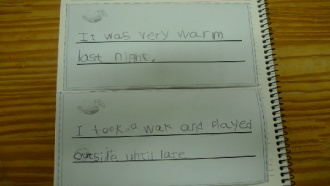 It was very warm
last night.
I took a wak and played
outside until late